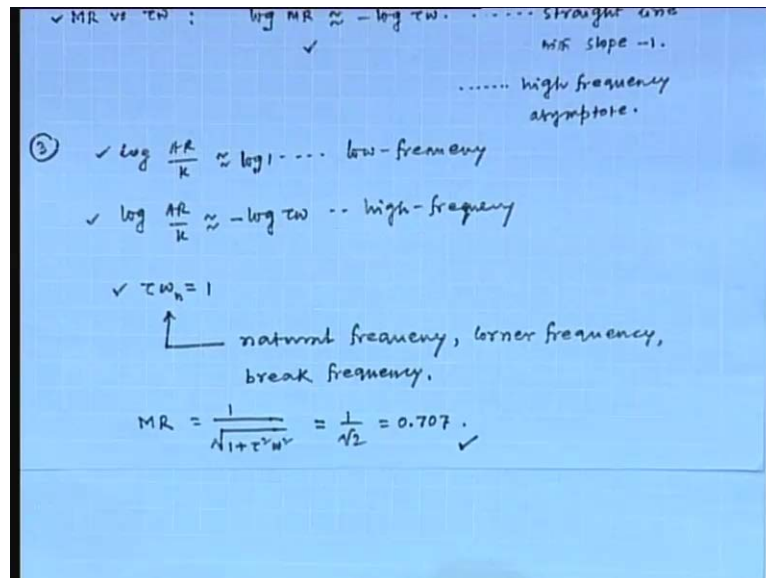 ✓ MR vs τω : log MR ≈ - log τω. ....... straight line
✓ with slope -1.
....... high frequency
asymptote.
③ ✓ log AR/K ≈ log 1 .... low-frequency
✓ log AR/K ≈ - log τω .. high-frequency
✓ τωn = 1
natural frequency, corner frequency,
break frequency.
MR = 1/√(1+τ²ω²) = 1/√2 = 0.707. ✓